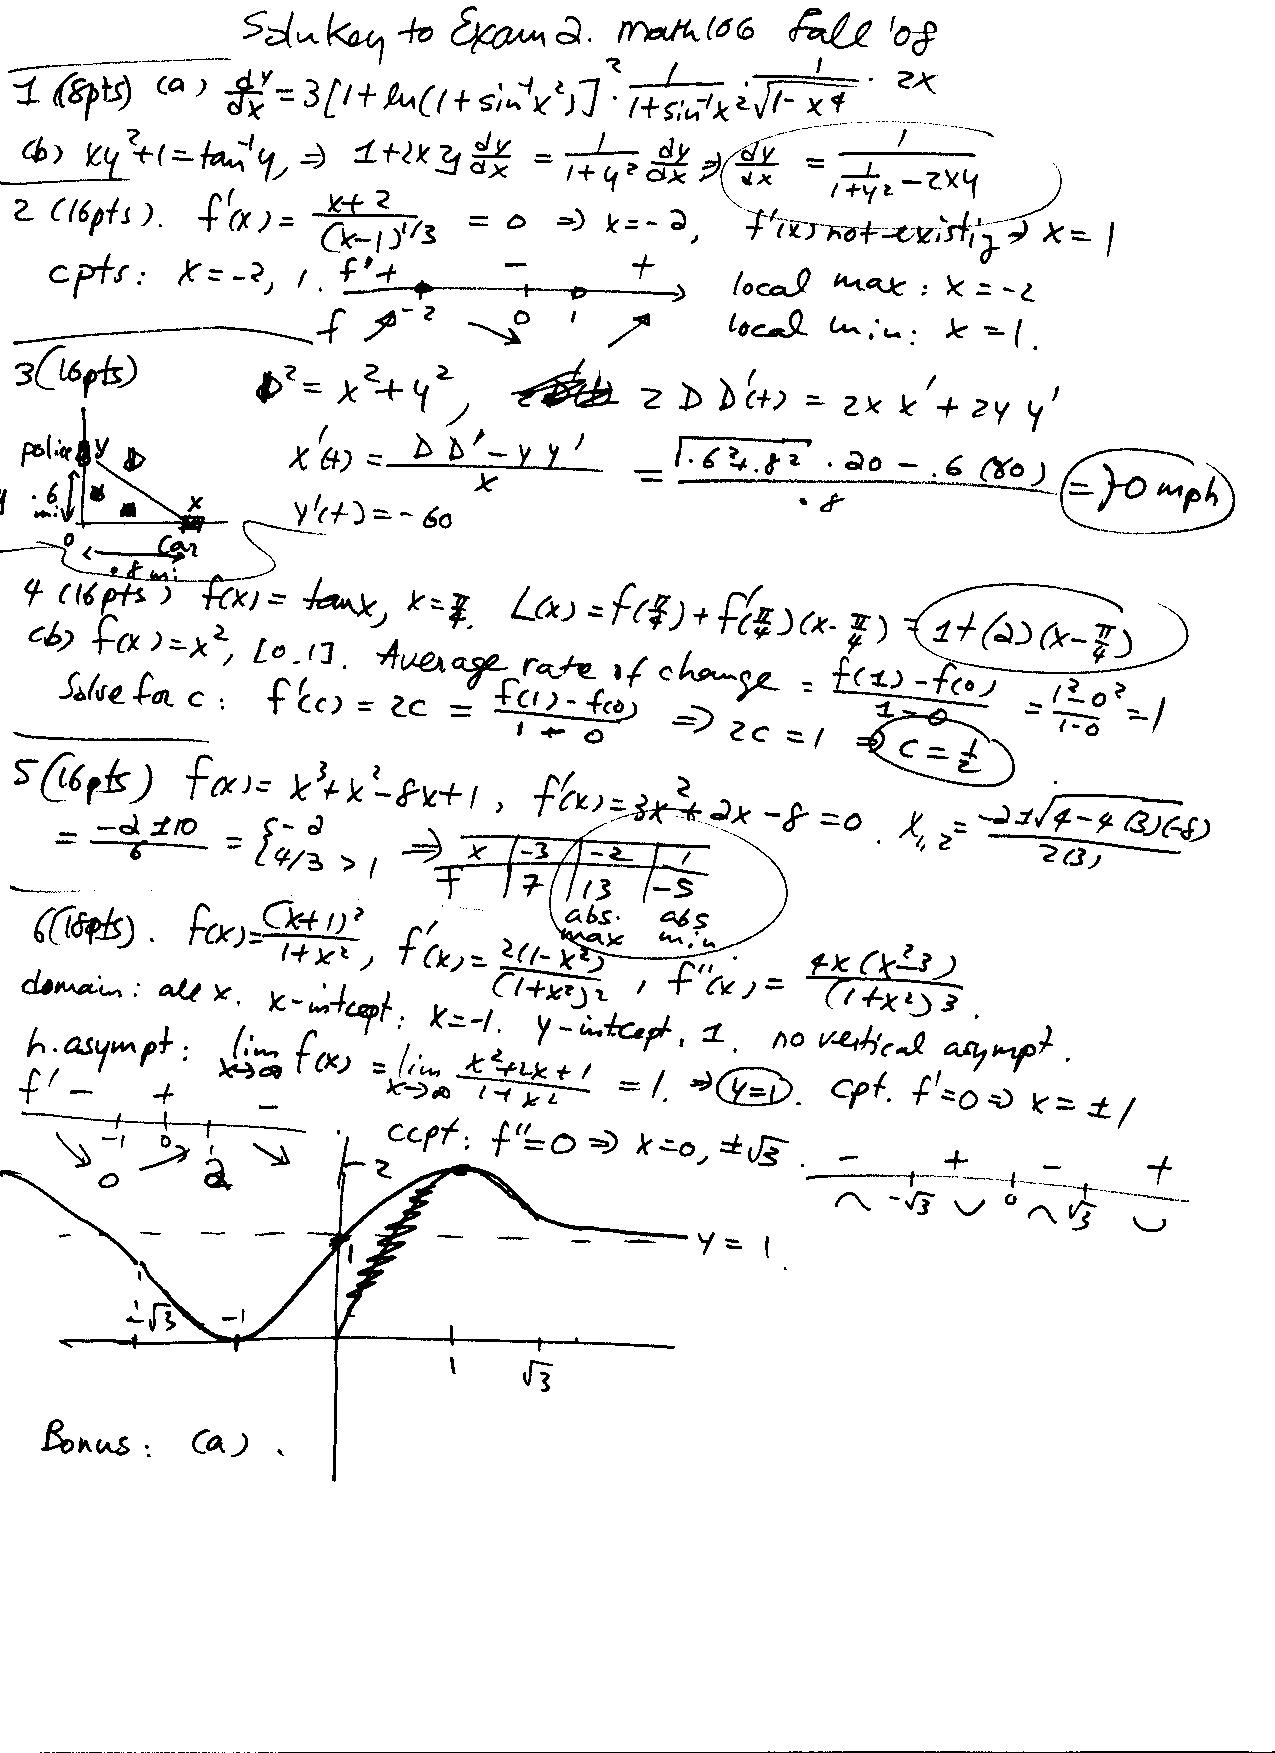 Solu Key to Exam 2. Math 106 Fall '08
1 (8pts) (a) dy/dx = 3[1+ln(1+sin⁻¹x²)]² · 1/(1+sin⁻¹x²) · 1/√(1-x⁴) · 2x
(b) xy²+1=tan⁻¹y, ⇒ 1+2xy dy/dx = 1/(1+y²) dy/dx ⇒ dy/dx = 1/(1/(1+y²) - 2xy)
2 (16pts). f'(x) = (x+2)/(x-1)^(1/3) = 0 ⇒ x=-2, f'(x) not existig ⇒ x=1
cpts: x=-2, 1. f' + - +
-2 0 1
f ↗ ↘ ↗
local max: x=-2
local min: x=1.
3 (16pts) D² = x²+y², 2 D D'(t) = 2x x' + 2y y'
police y D
x'(t) = (D D' - y y')/x = (√(.6²+.8²) · 20 - .6 (80))/.8 = 70 mph
.6 mi x
y'(t) = -60
0 car
.8 mi
4 (16pts) f(x) = tanx, x=π/4. L(x) = f(π/4)+f'(π/4)(x-π/4) = 1+(2)(x-π/4)
(b) f(x)=x², [0.1]. Average rate of change = (f(1)-f(0))/(1-0) = (1²-0²)/(1-0) = 1
Solve for c: f'(c) = 2c = (f(1)-f(0))/(1-0) ⇒ 2c=1 ⇒ c=1/2
5 (16pts) f(x) = x³+x²-8x+1, f'(x)=3x²+2x-8=0. x₁,₂ = (-2±√(4-4(3)(-8)))/2(3)
= (-2±10)/6 = {-2 4/3 > 1 ⇒ x | -3 | -2 | 1
f | 7 | 13 | -5
abs. max abs min
6 (18pts). f(x)=(x+1)²/(1+x²), f'(x)=2(1-x²)/(1+x²)², f''(x) = 4x(x²-3)/(1+x²)³.
domain: all x. x-intcept: x=-1. y-intcept, 1. no vertical asympt.
h.asympt: lim x→∞ f(x) = lim x→∞ (x²+2x+1)/(1+x²) = 1. ⇒ y=1. cpt. f'=0 ⇒ x=±1
f' - + -
-1 0 1
↘ 0 ↗ 2 ↘
ccpt: f''=0 ⇒ x=0, ±√3.
- + - +
⌒ -√3 ∪ 0 ⌒ √3 ∪
2
1 y=1
-√3 -1
1 √3
Bonus: (a).